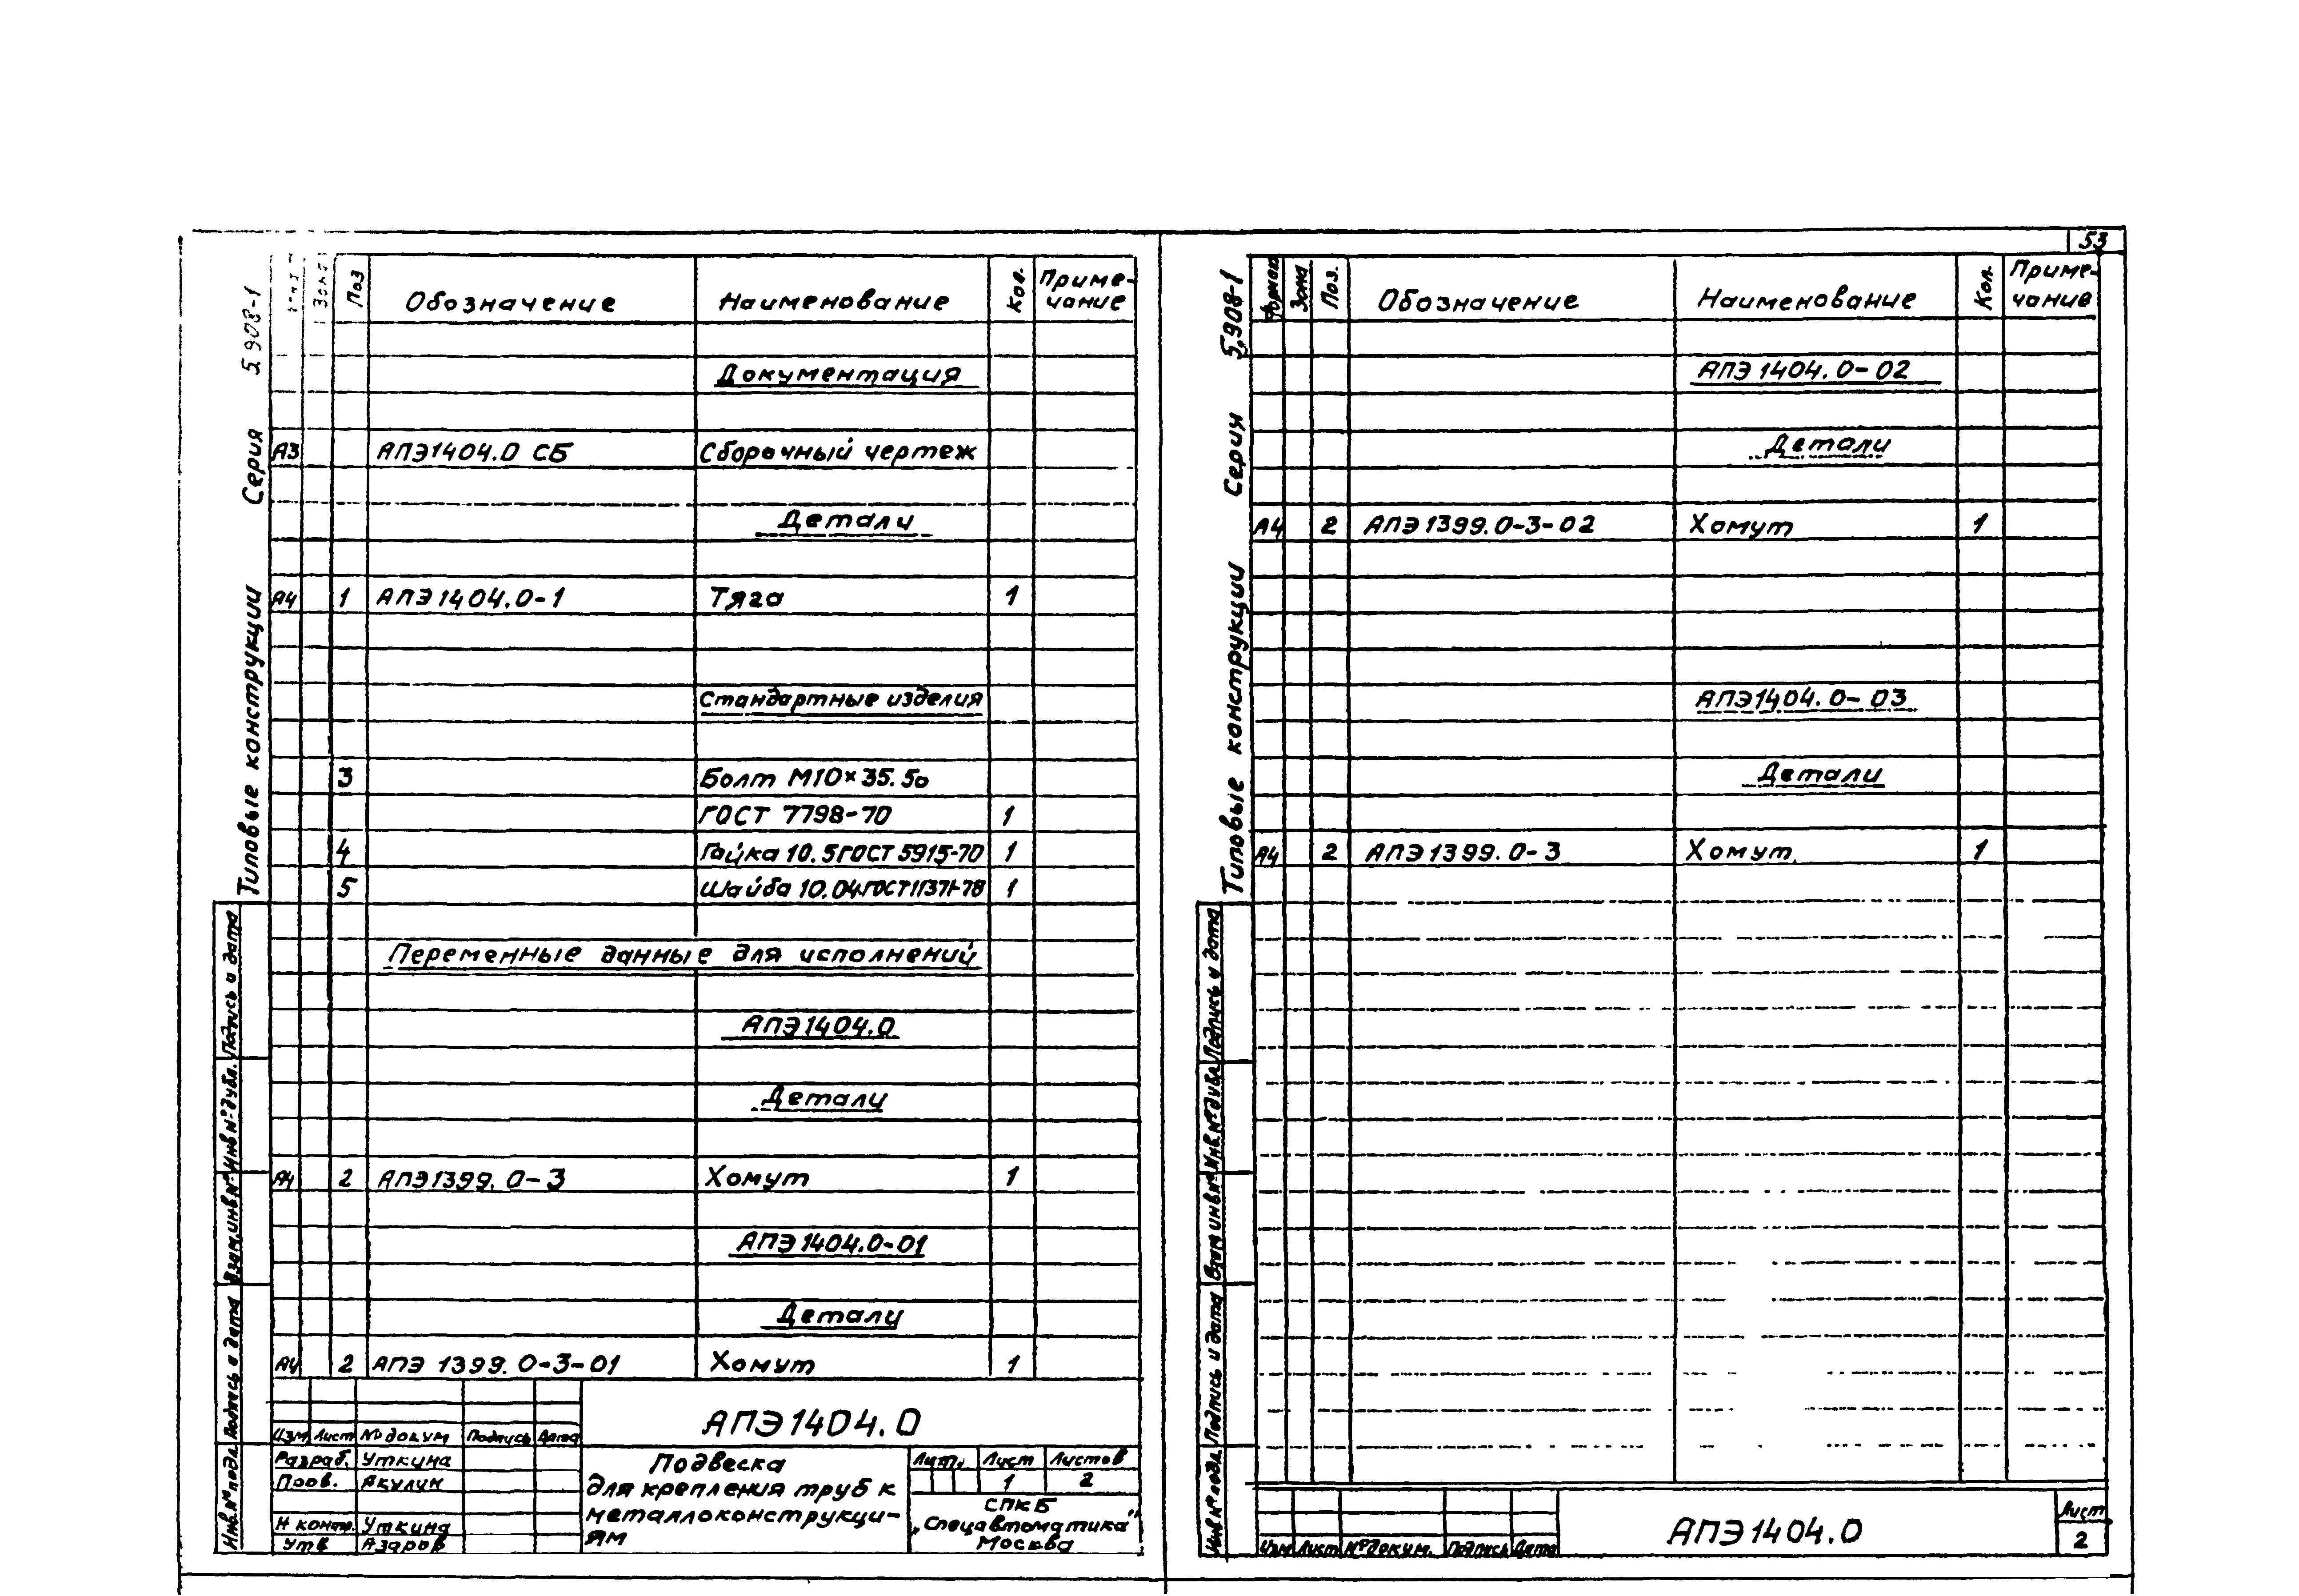 53
Типовые конструкции Серия 5.908-1
Зона Поз Обозначение Наименование Кол. Приме-
чание
Документация
А3 АПЭ1404.0 СБ Сборочный чертеж
Детали
А4 1 АПЭ1404.0-1 Тяга 1
Стандартные изделия
3 Болт М10×35.50
ГОСТ 7798-70 1
4 Гайка 10.5 ГОСТ 5915-70 1
5 Шайба 10.04 ГОСТ 11371-78 1
Переменные данные для исполнений
АПЭ1404.0
Детали
А4 2 АПЭ1399.0-3 Хомут 1
АПЭ1404.0-01
Детали
А4 2 АПЭ 1399.0-3-01 Хомут 1
Инв.№подл. Подпись и дата Взам.инв№ Инв№дубл. Подпись и дата
Изм Лист №докум Подпись Дата
Разраб. Уткина
Пров. Акулин
Н контр. Уткина
Утв Азаров
АПЭ1404.0
Подвеска
для крепления труб к
металлоконструкци-
ям
Лит. Лист Листов
1 2
СПКБ
„Спецавтоматика"
Москва
Типовые конструкции Серия 5.908-1
Формат Зона Поз. Обозначение Наименование Кол. Приме-
чание
АПЭ1404.0-02
Детали
А4 2 АПЭ1399.0-3-02 Хомут 1
АПЭ1404.0-03
Детали
А4 2 АПЭ1399.0-3 Хомут 1
Инв№подл. Подпись и дата Взам инв№ Инв.№дубл. Подпись и дата
Изм Лист №докум. Подпись Дата
АПЭ1404.0
Лист
2